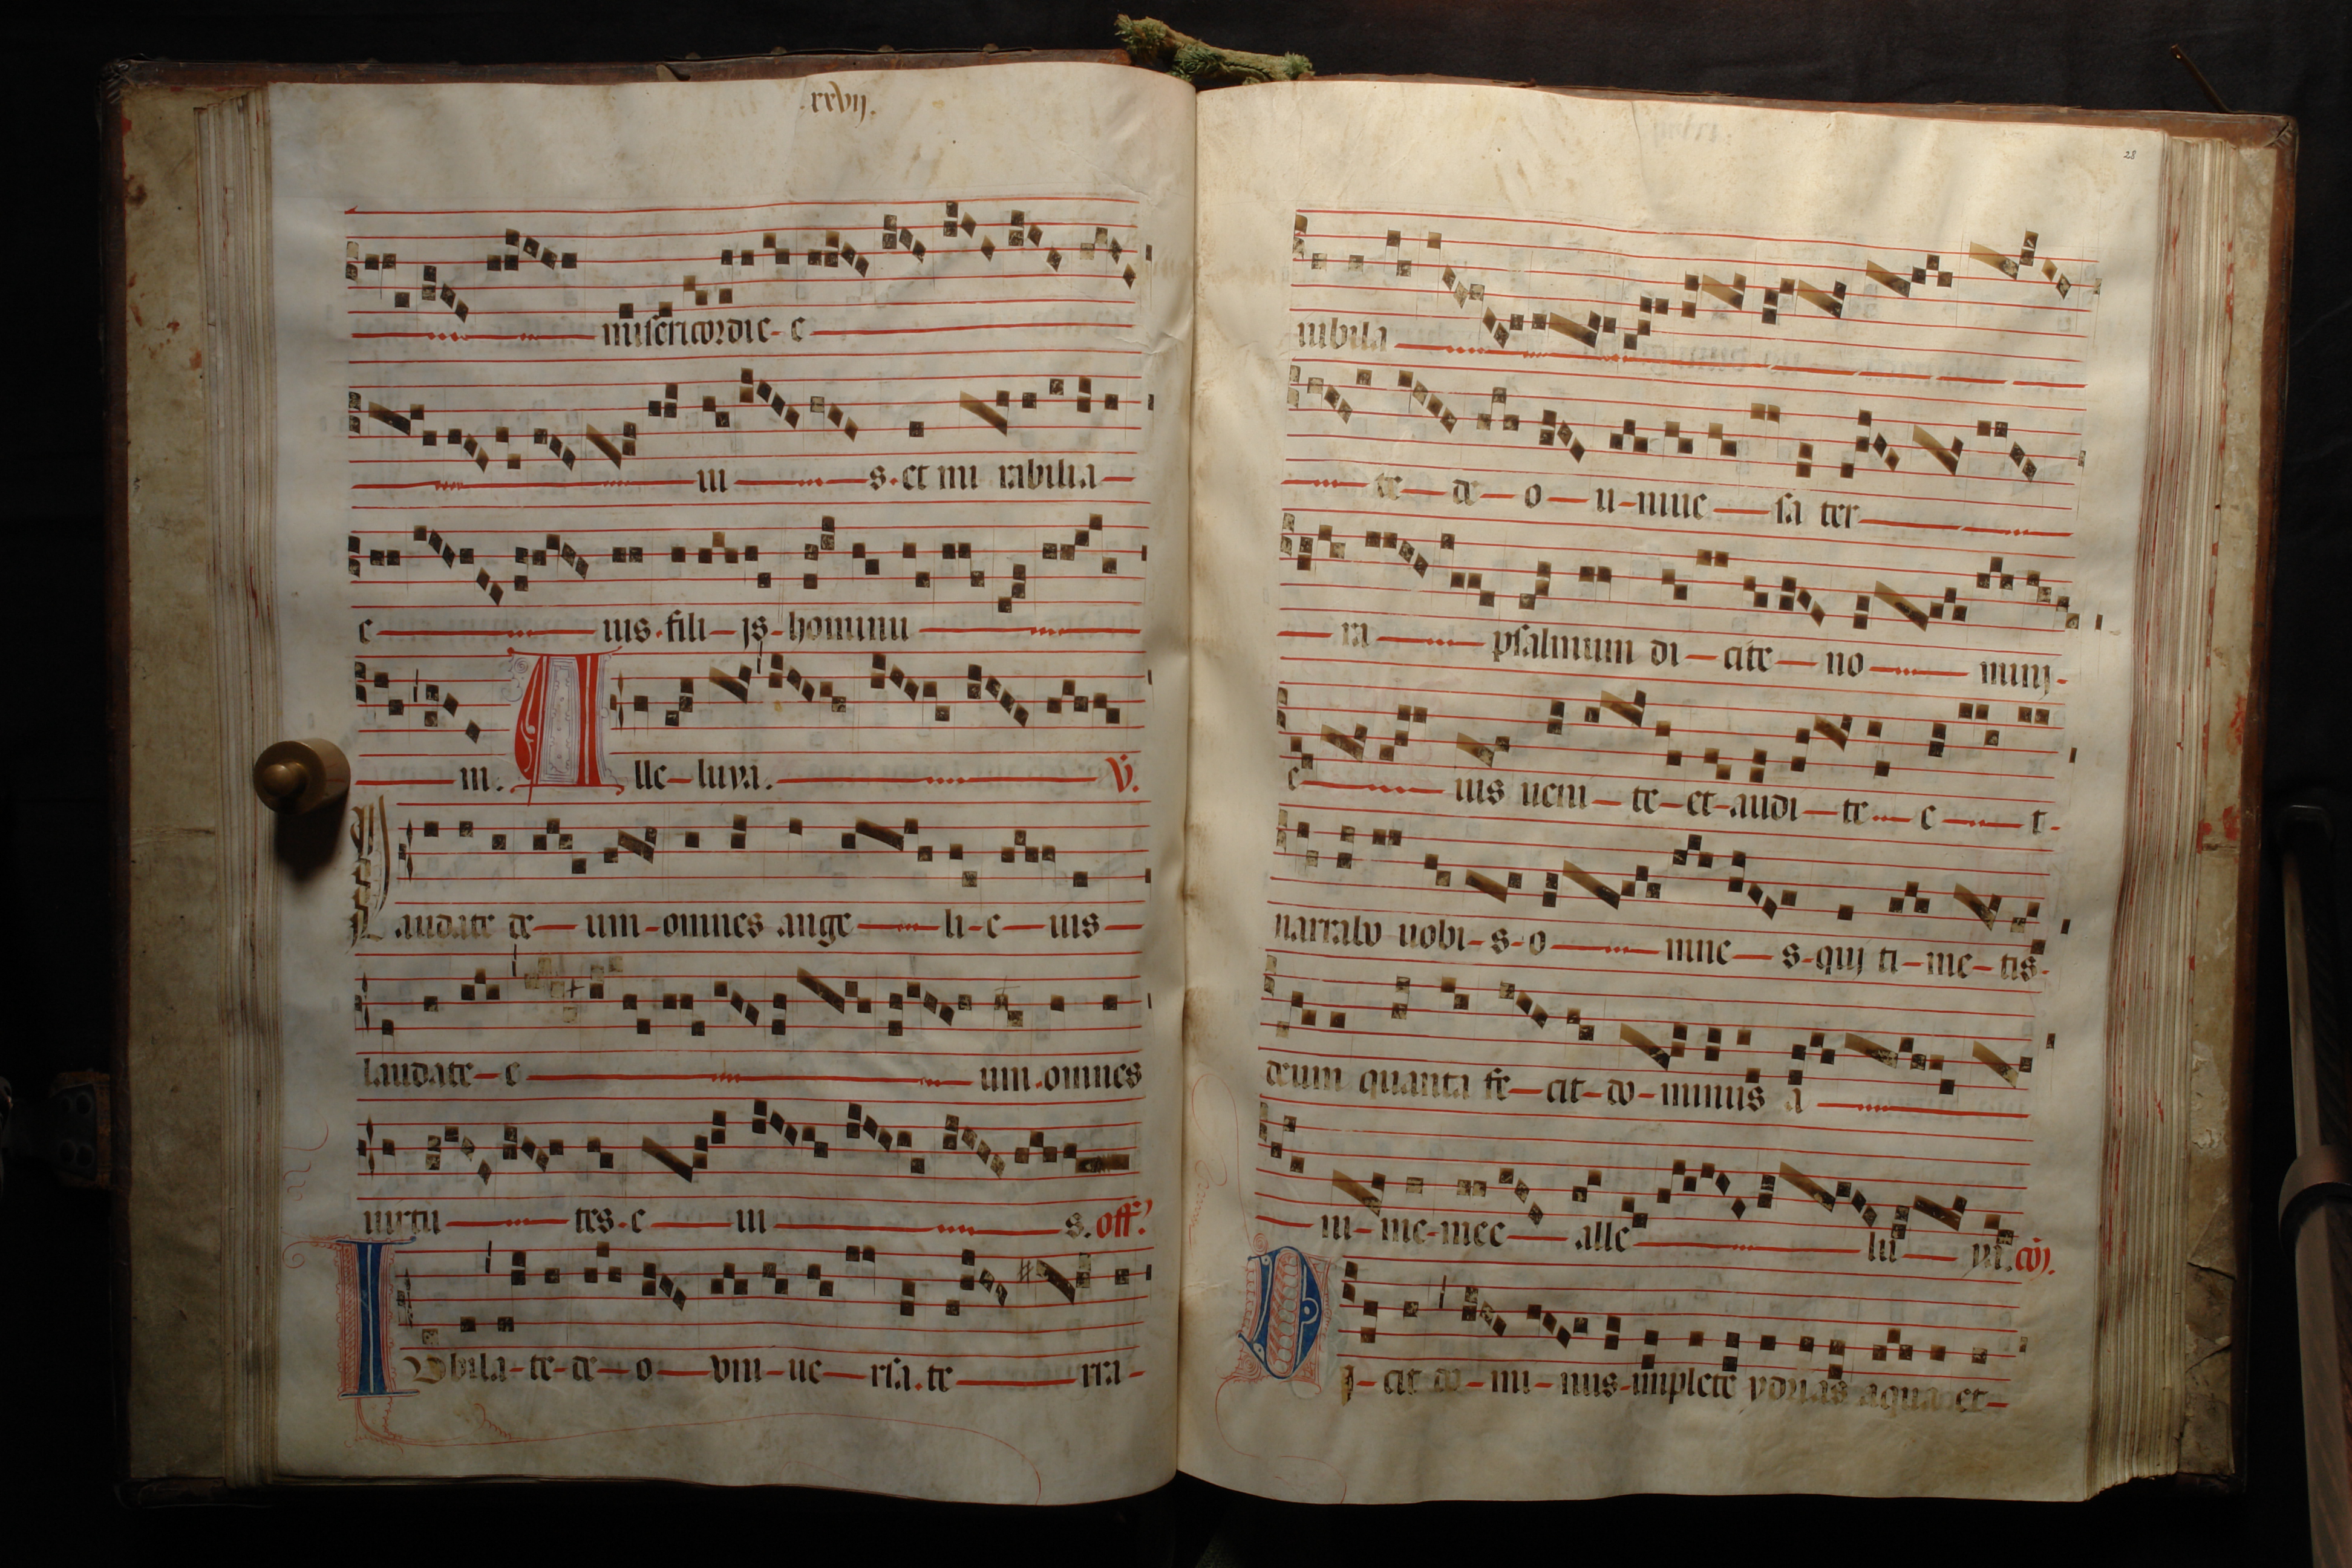 .xxvij.
misericordie- e
ni s. et mi rabilia
e ius. fili- js- hominu
m. Alle- luya. V.
Laudate de- um- omnes ange- li- e- ius-
laudate- e um. omnes
uirtu tes. e iu s. off.
IVbila- te- de- o- vni- ue- rsa. te rra-
28
iubila
te- de- o- u- niue sa ter
ra psalmum di- cite- no mini-
e ius ueni- te- et- audi- te e t-
narrabo uobi- s- o mne s- qui ti- me- tis-
deum quanta fe- cit- do- minus a
ni- me- mee alle lu ya. co.
D i- cit do- mi- nus- implete ydrias aqua et-